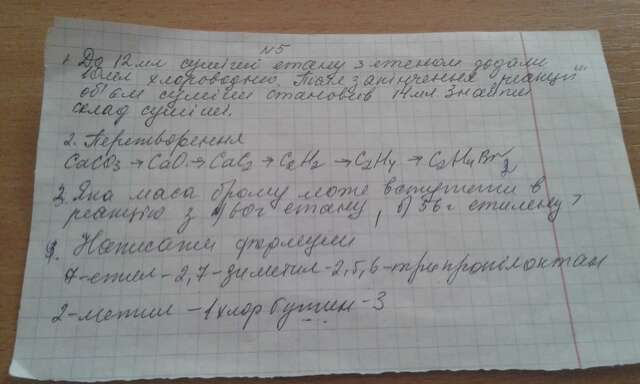 №5
1. До 12мл суміші етану з етеном додали
10мл хлороводню. Після закінчення реакції
об'єм суміші становив 14мл. Знайти
склад суміші.
2. Перетворення
CaCO3 → CaO → CaC2 → C2H2 → C2H4 → C2H4Br2
3. Яка маса брому може вступити в
реакцію з а) етану, б) 56г етилену?
4. Написати формули
7-етил-2,7-диметил-2,5,6-трипропілоктан
2-метил-1хлорбутин-3